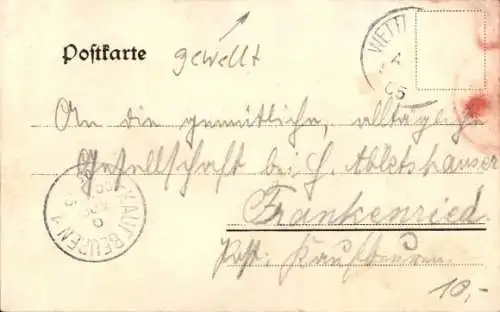 gewellt
Postkarte
WETT
4
05
An die gemütliche, alltägliche
Gesellschaft bei H. Abletshauser
Frankenried
Post: Kaufbeuren.
KAUFBEUREN 1
10,-